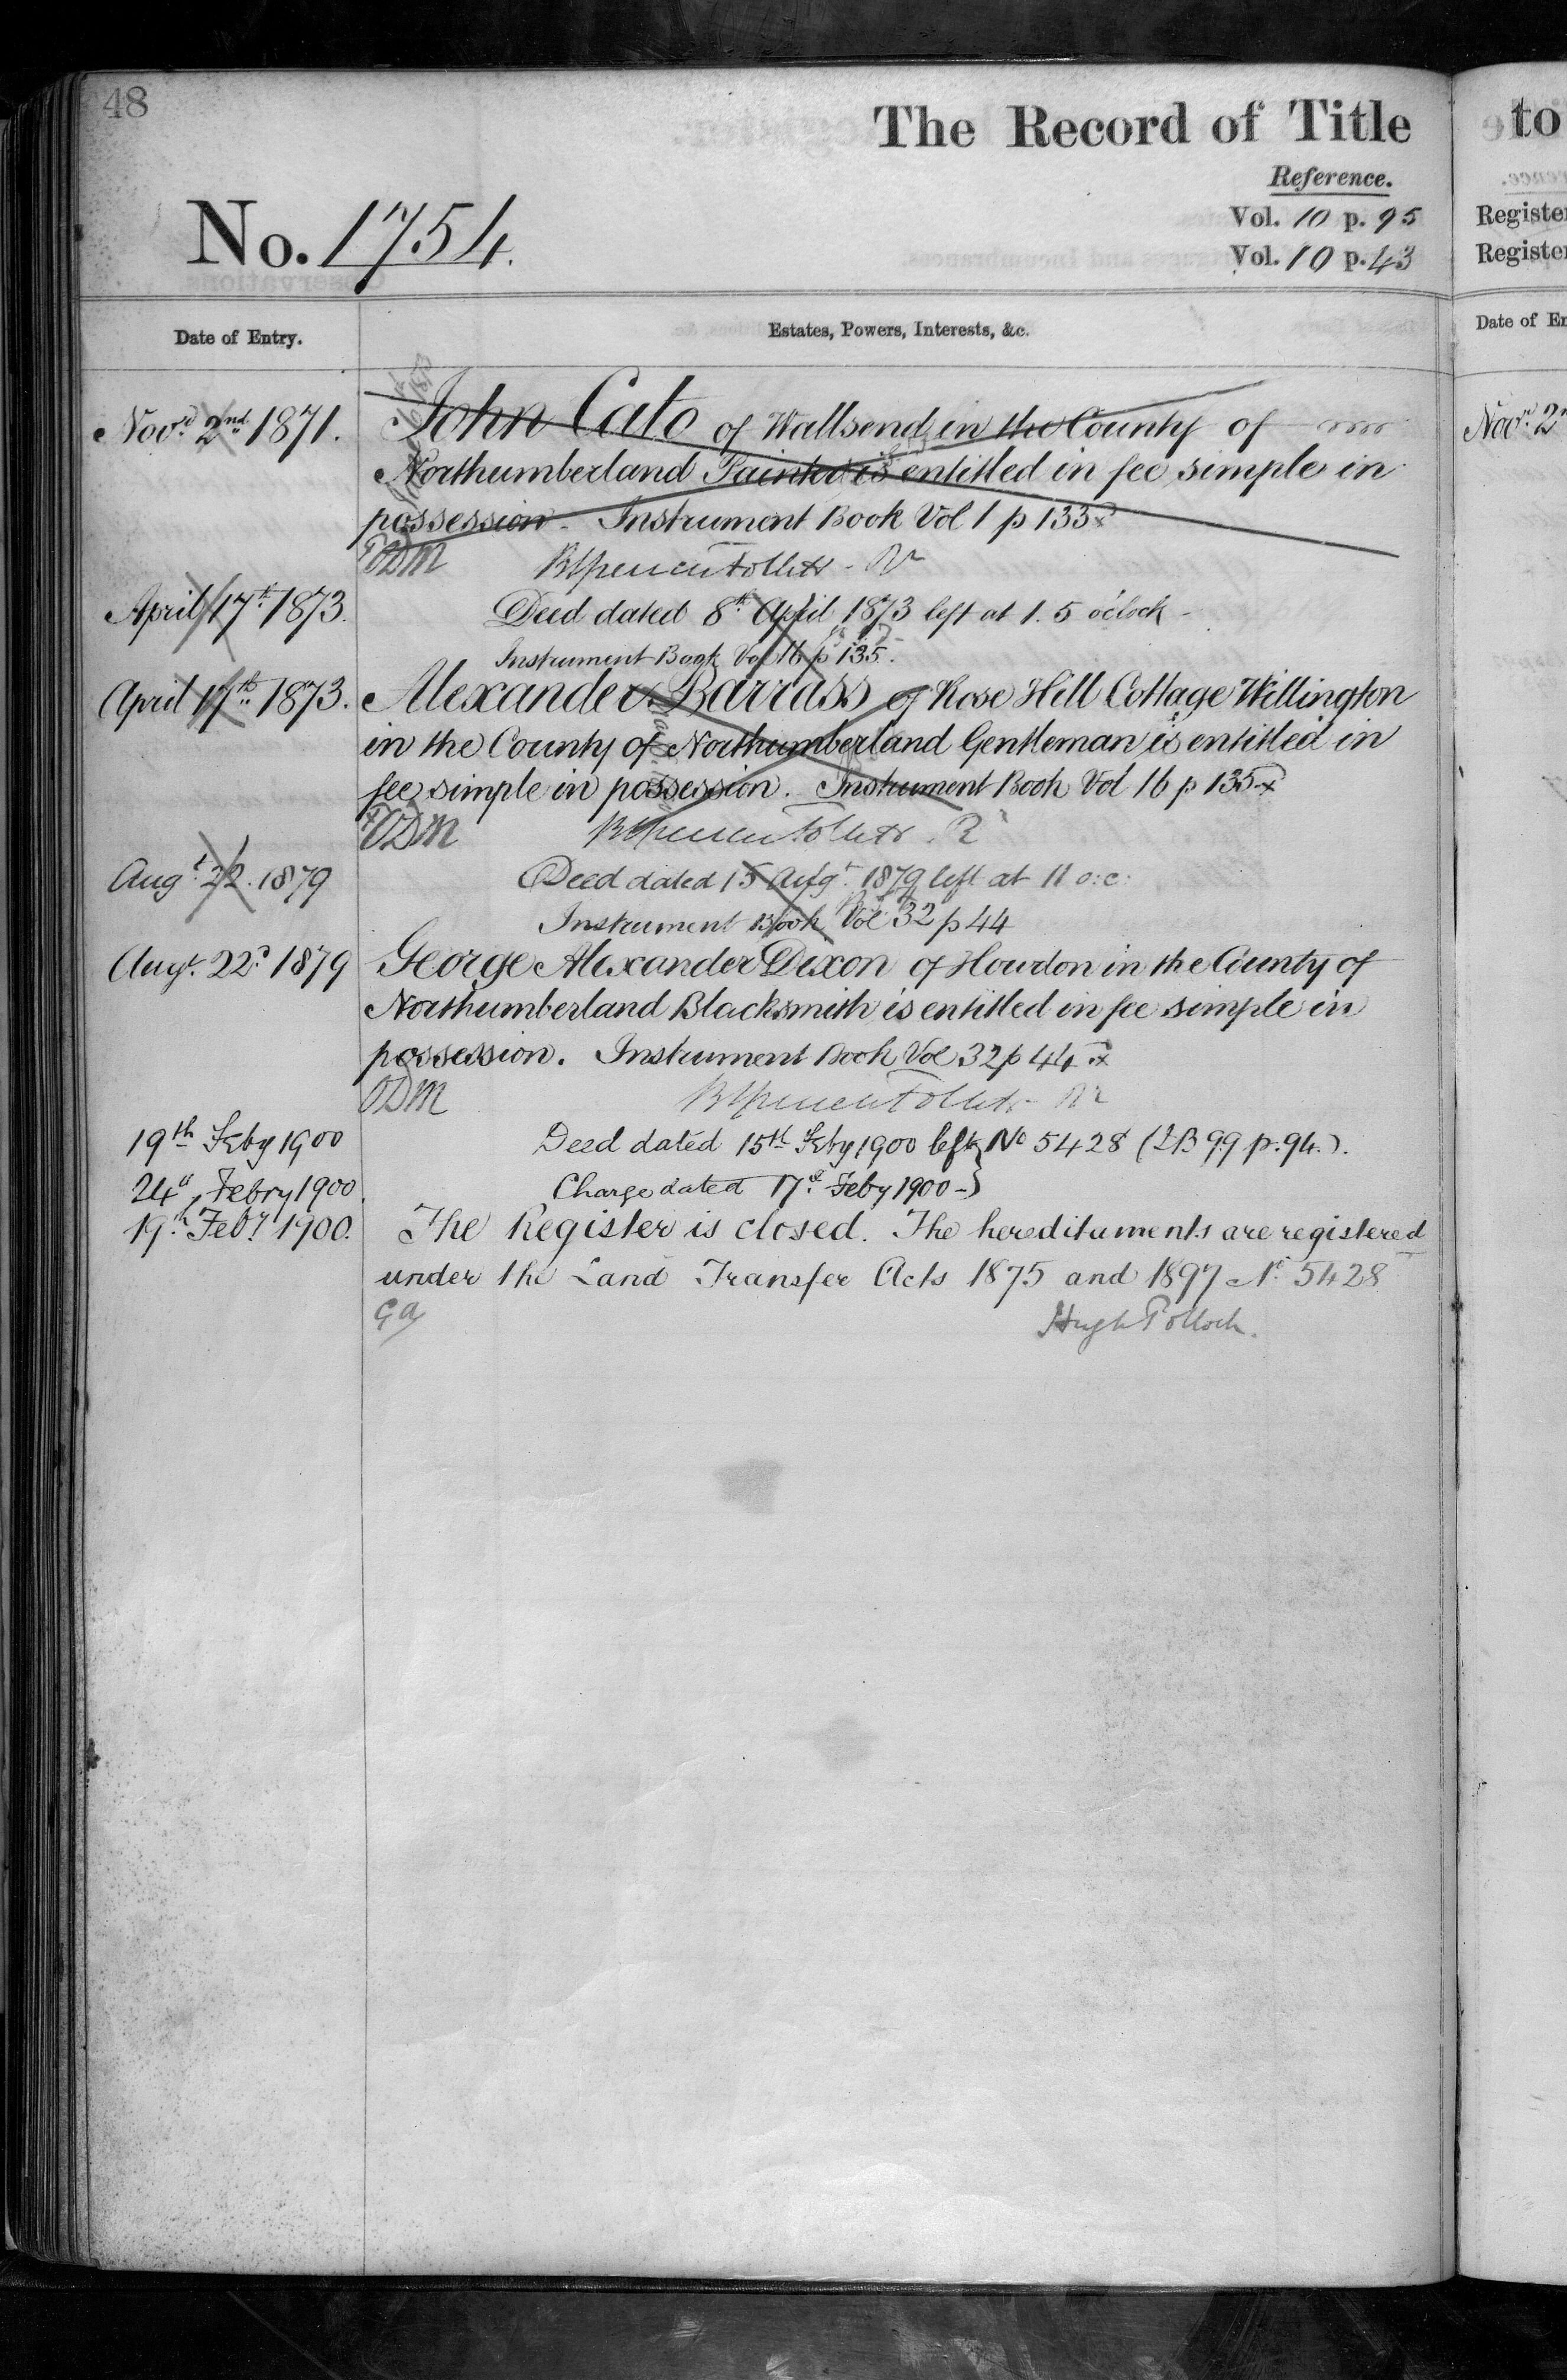 48
The Record of Title
to
Reference.
No. 1754.
Vol. 10 p. 95
Register
Vol. 10 p. 43
Register
Date of Entry.
Estates, Powers, Interests, &c.
Date of En
Novr. 2nd 1871.
John Cato of Wallsend in the County of
Northumberland Painter is entitled in fee simple in
possession. Instrument Book Vol 1 p 133
ODM
Novr. 2
April 17th 1873.
Deed dated 8th April 1873 left at 1. 5 o'clock
Instrument Book Vol 16 p 135.
April 17th 1873.
Alexander Barrass of Rose Hill Cottage Willington
in the County of Northumberland Gentleman is entitled in
fee simple in possession. Instrument Book Vol 16 p 135
ODM
Augt. 22. 1879
Deed dated 15 Augt. 1879 left at 11 o:c:
Instrument Book Vol 32 p 44
Augt. 22d 1879
George Alexander Dixon of Howdon in the County of
Northumberland Blacksmith is entitled in fee simple in
possession. Instrument Book Vol 32 p 44
ODM
19th Feby 1900
Deed dated 15th Feby 1900 left } No 5428 (I B 99 p. 94.).
24th Febry 1900.
Charge dated 17th Feby 1900 - }
19th Feby 1900.
The Register is closed. The hereditaments are registered
under the Land Transfer Acts 1875 and 1897 No 5428
GA
Hugh Pollock.